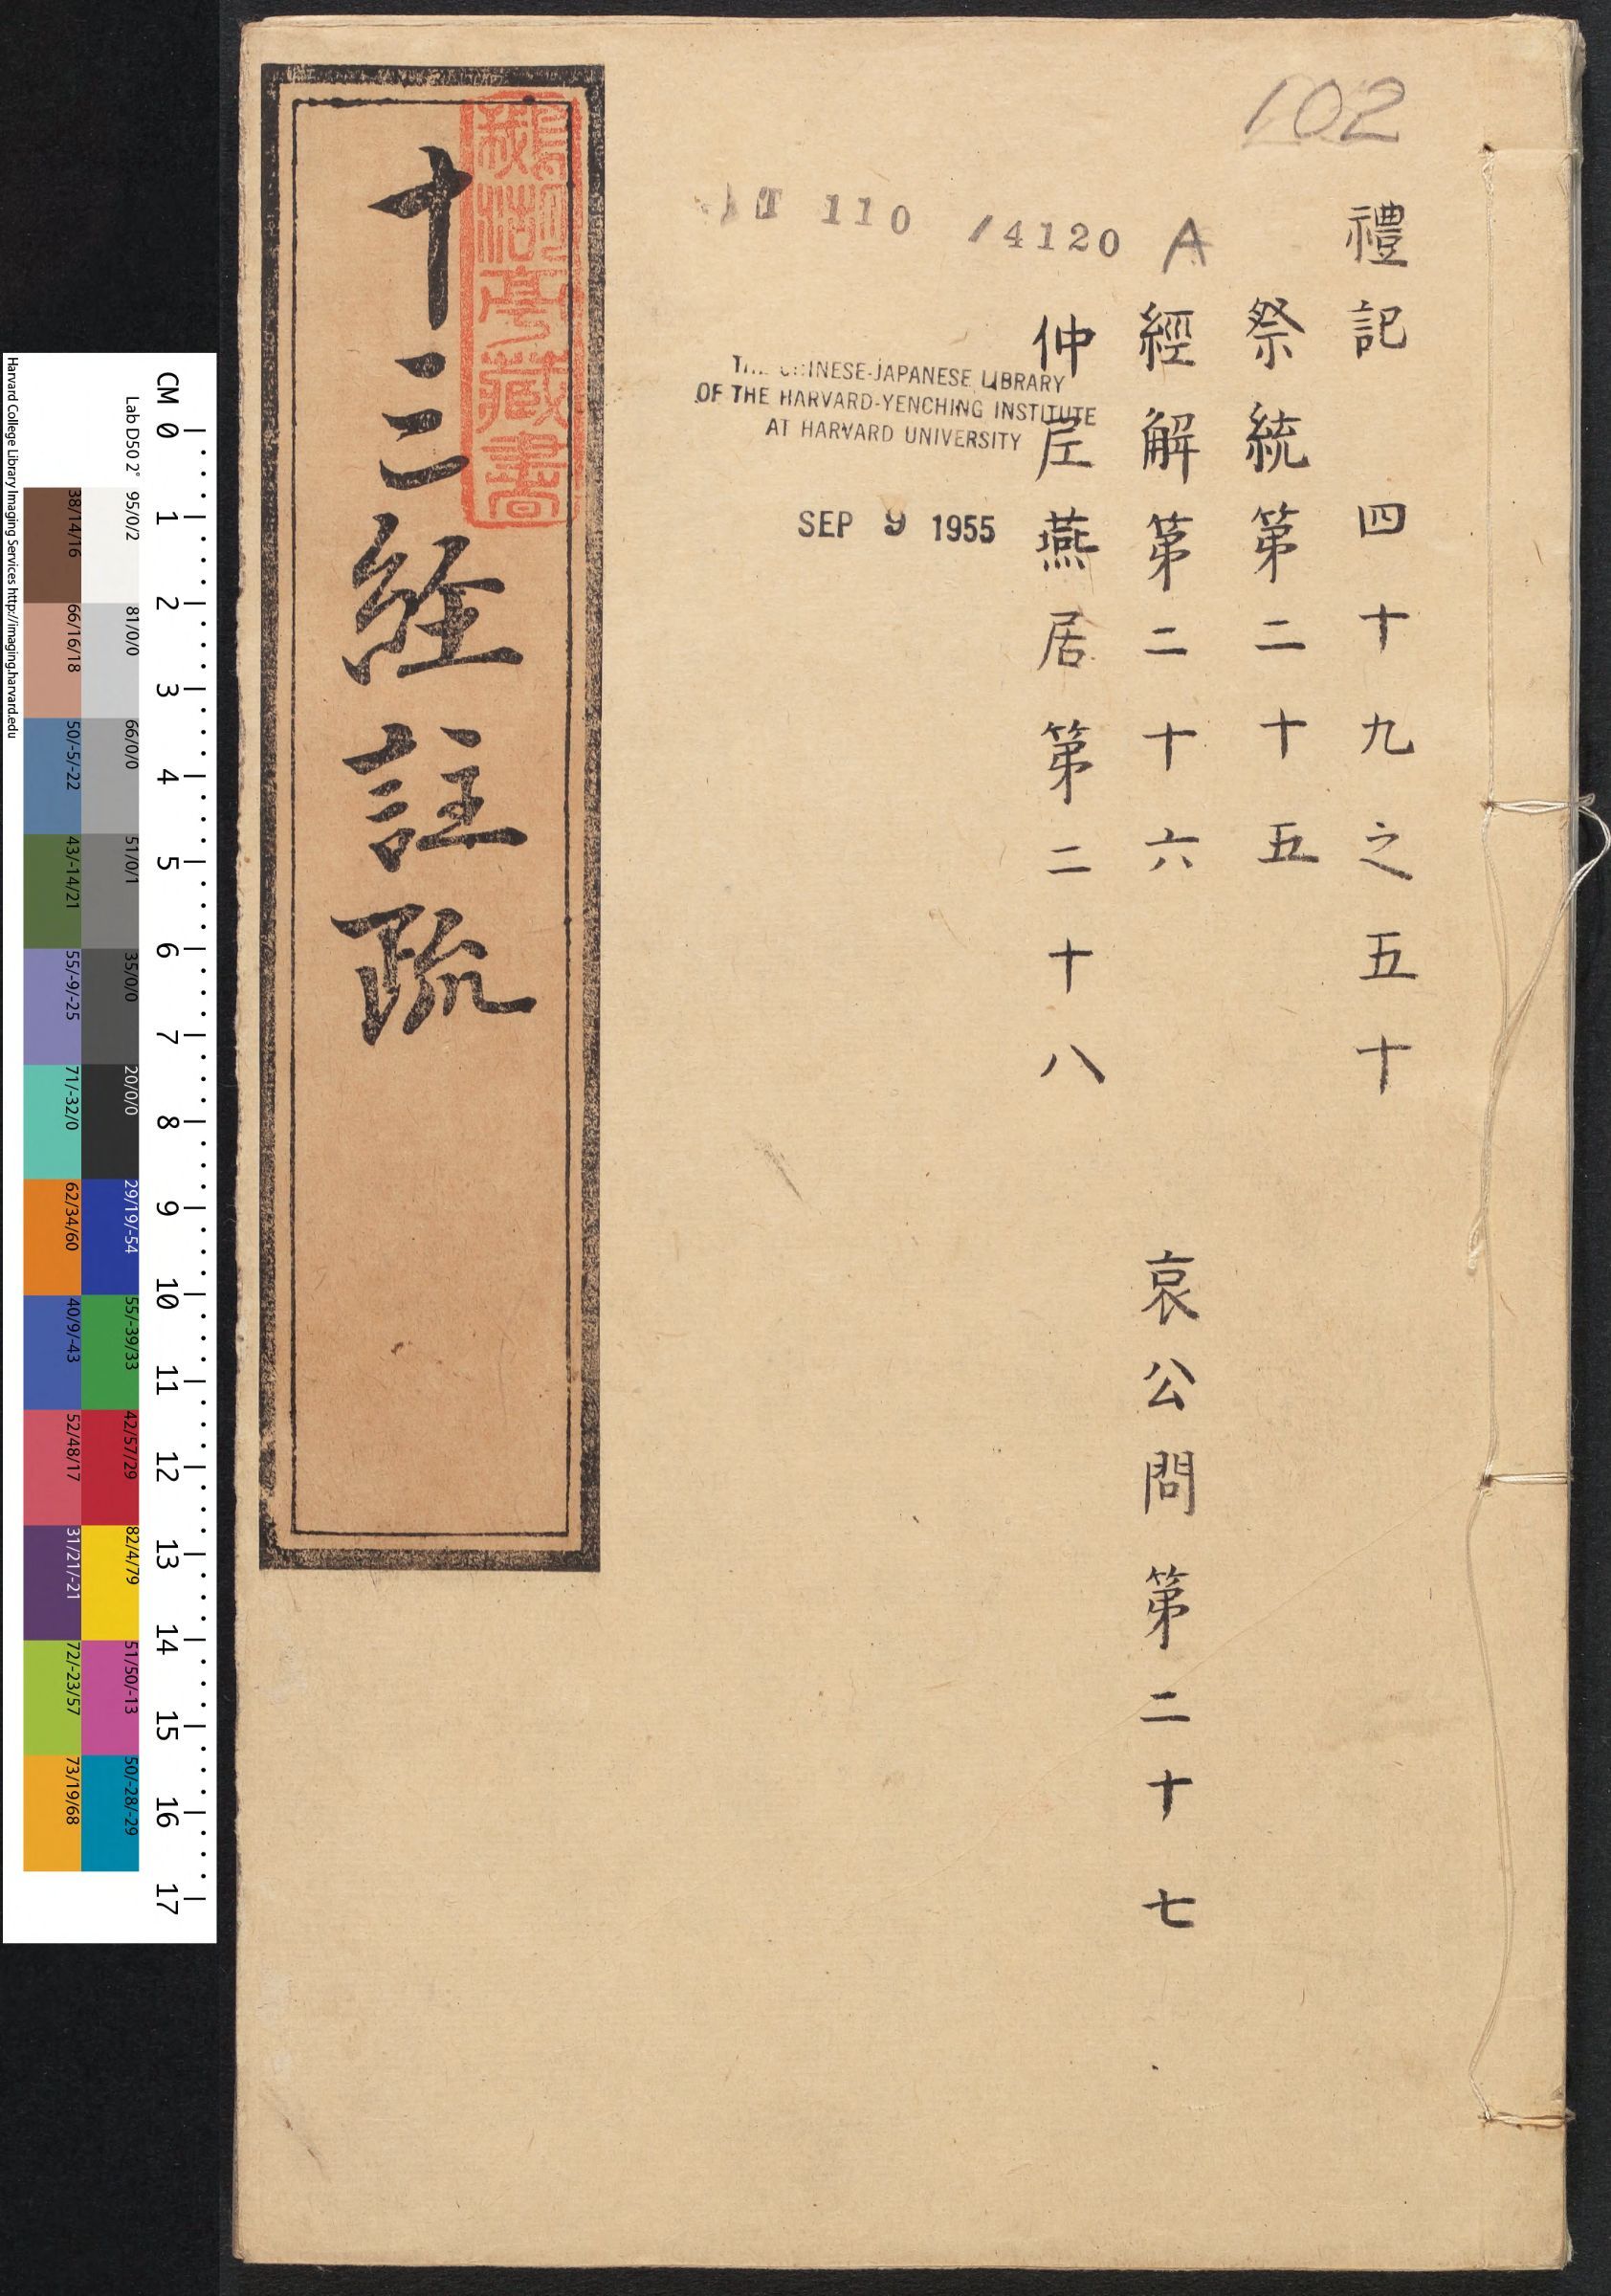 102
禮記 四十九之五十
祭統第二十五
經解第二十六 哀公問第二十七
仲尼燕居第二十八
110 /4120 A
CHINESE-JAPANESE LIBRARY
OF THE HARVARD-YENCHING INSTITUTE
AT HARVARD UNIVERSITY
SEP 9 1955
十三経註疏
藏書
CM 0 1 2 3 4 5 6 7 8 9 10 11 12 13 14 15 16 17
Lab D50 2° 95/0/2 81/0/0 66/0/0 51/0/1 35/0/0 20/0/0 29/19/-54 55/-39/33 42/57/29 82/4/79 51/50/-13 50/-28/-29
38/14/16 66/16/18 50/-5/-22 43/-14/21 55/-9/-25 71/-32/0 62/34/60 40/9/-43 52/48/17 31/21/-21 72/-23/57 73/19/68
Harvard College Library Imaging Services http://imaging.harvard.edu